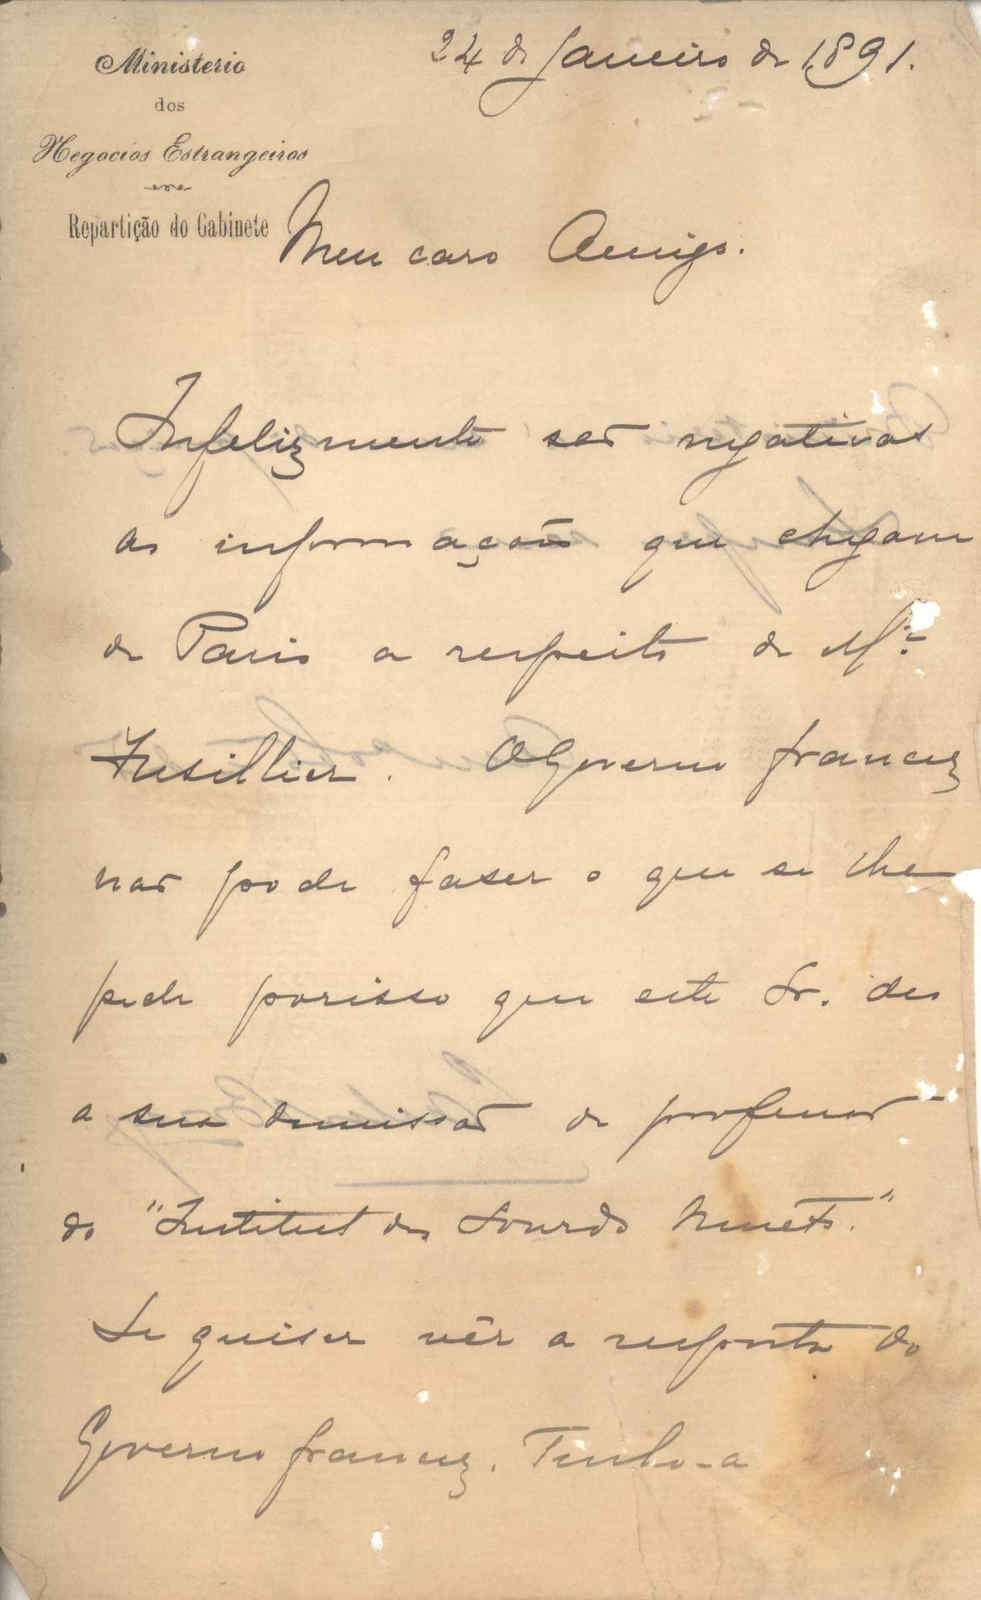 Ministerio
dos
Negocios Estrangeiros
Repartição do Gabinete
24 de Janeiro de 1891.
Meu caro Amigo.
Infelizmente são negativas
as informações que chegam
de Paris a respeito de Mr.
Fusillier. O Governo francez
não pode faser o que se lhe
pede porisso que este Sr. deu
a sua demissão de professor
do "Institut des Sourds Muets."
Se quiser vêr a resposta do
Governo francez. Tenho-a